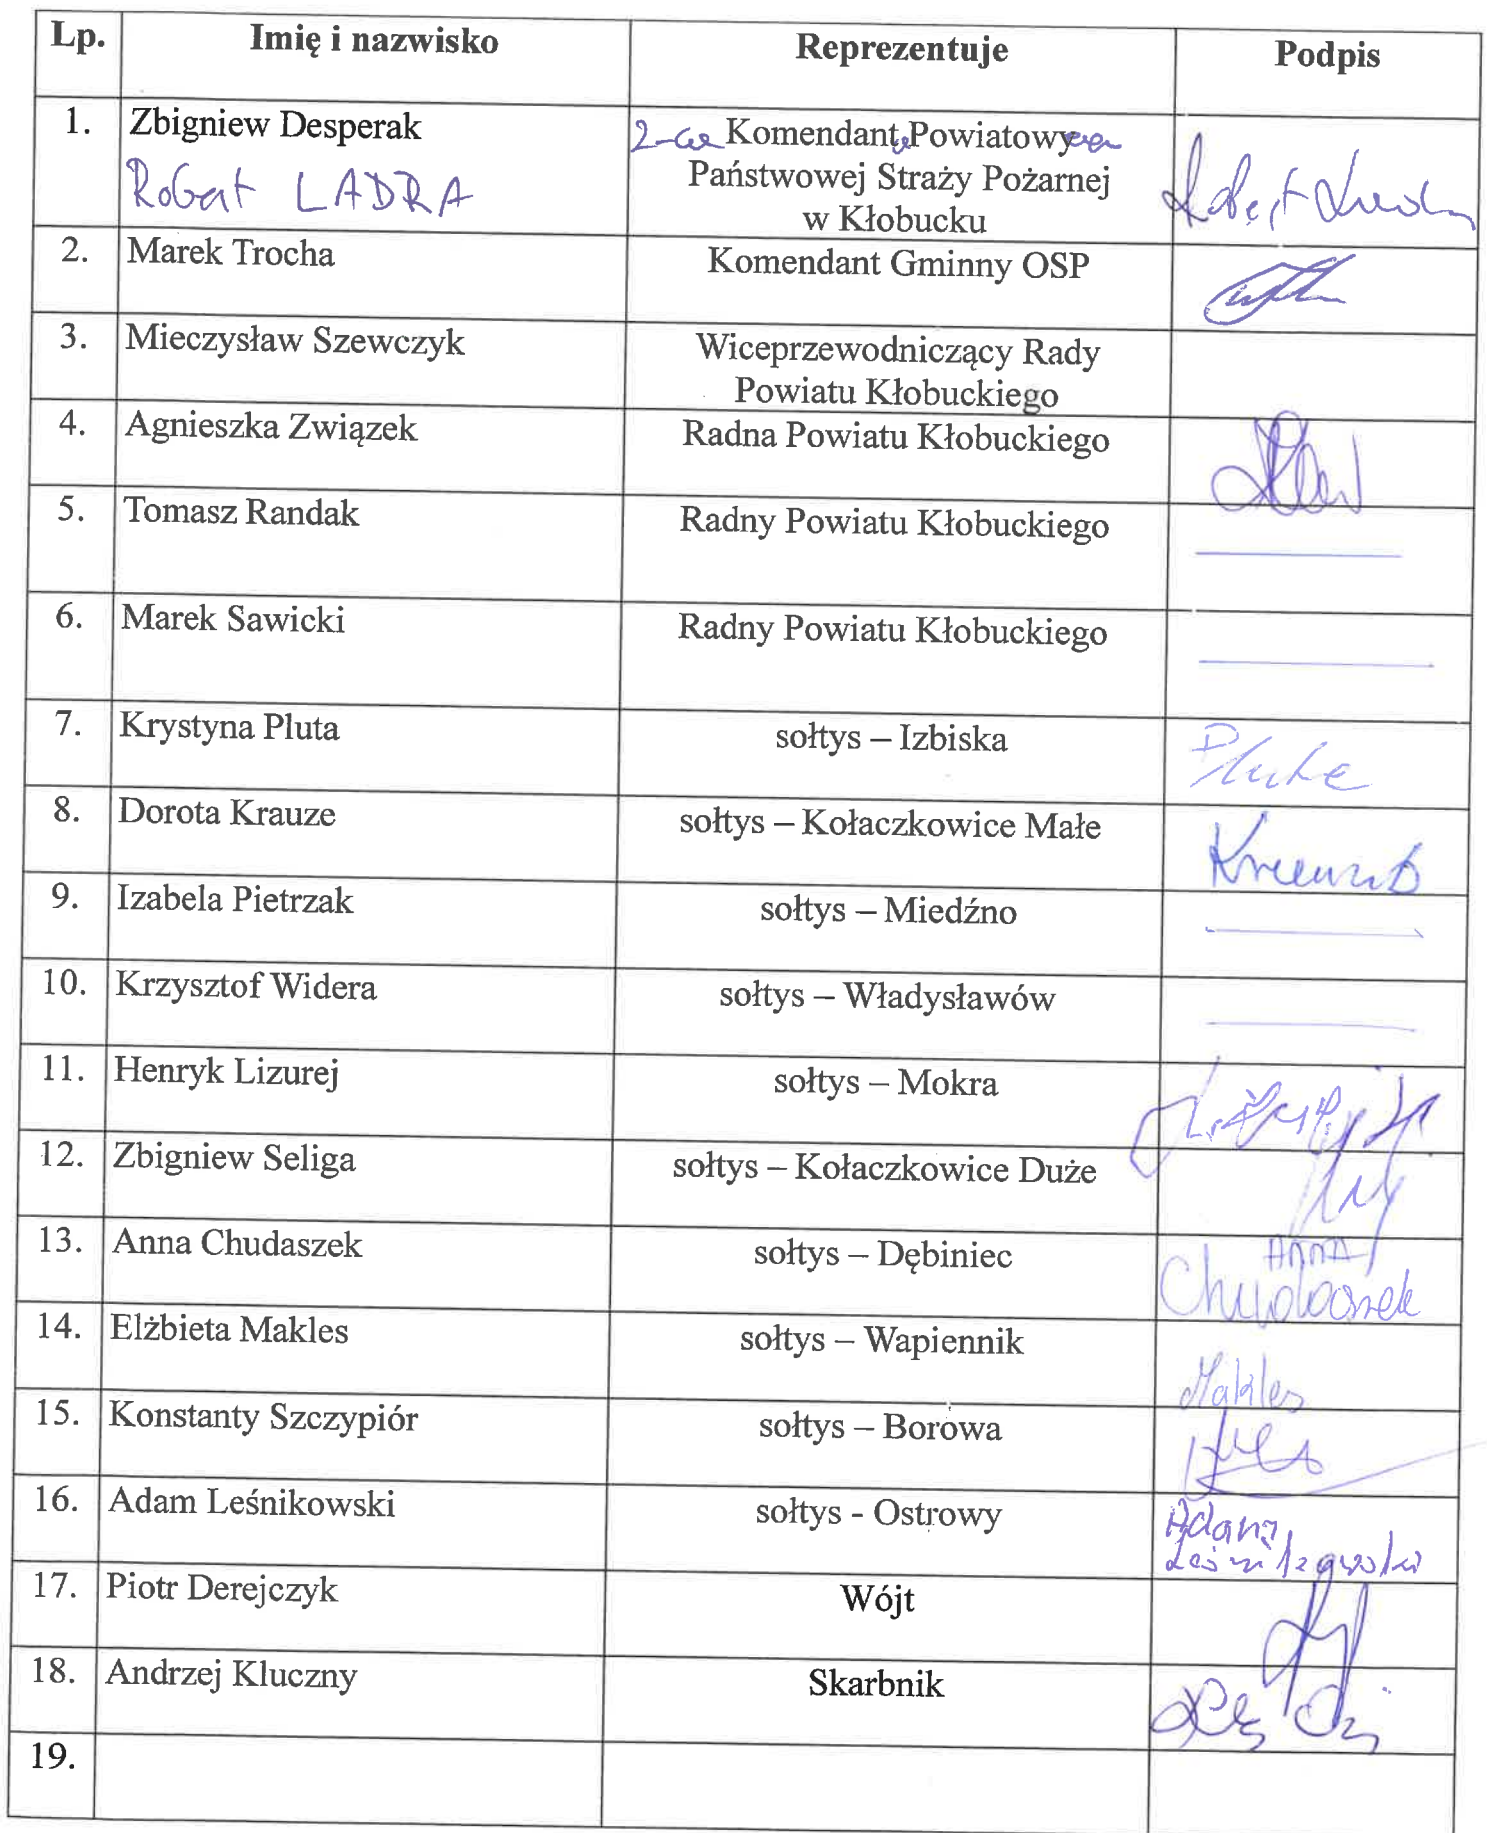 Lp. Imię i nazwisko Reprezentuje Podpis
1. Zbigniew Desperak 2-ca Komendanta Powiatowego
Robert LADRA Państwowej Straży Pożarnej
w Kłobucku
2. Marek Trocha Komendant Gminny OSP
3. Mieczysław Szewczyk Wiceprzewodniczący Rady
Powiatu Kłobuckiego
4. Agnieszka Związek Radna Powiatu Kłobuckiego
5. Tomasz Randak Radny Powiatu Kłobuckiego
6. Marek Sawicki Radny Powiatu Kłobuckiego
7. Krystyna Pluta sołtys – Izbiska Pluta
8. Dorota Krauze sołtys – Kołaczkowice Małe
9. Izabela Pietrzak sołtys – Miedźno
10. Krzysztof Widera sołtys – Władysławów
11. Henryk Lizurej sołtys – Mokra
12. Zbigniew Seliga sołtys – Kołaczkowice Duże
13. Anna Chudaszek sołtys – Dębiniec Anna
Chudaszek
14. Elżbieta Makles sołtys – Wapiennik Makles
15. Konstanty Szczypiór sołtys – Borowa
16. Adam Leśnikowski sołtys - Ostrowy Adam
Leśnikowski
17. Piotr Derejczyk Wójt
18. Andrzej Kluczny Skarbnik
19.